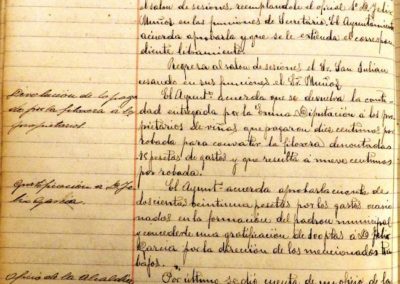 al salon de sesiones reemplazandole el oficial Sr. D. Felix
Muñoz en las funciones de Secretario. El Ayuntamiento
acuerda aprobarla y que se le extienda el correspon
diente libramiento.
Regresa al salon de sesiones el Sr. San Julian
cesando en sus funciones el Sr. Muñoz.
Devolucion de lo paga
do por la filoxera á los
propietarios.
El Aymt.º acuerda que se devuelva la canti
dad entregada por la Exma. Diputación á los pro
pietarios de viñas que pagaron diez centimos por
robada para combatir la filoxera descontadas
pesetas de gastos y que resulta á nueve centimos
por robada.
Gratificación á D. Fe
lix García
El Aymt.º acuerda aprobar la cuenta de
doscientas veintiuna pesetas por los gastos ocasio
nados en la formación del padron municipal
y concederle una gratificación de 100 ptas á D. Felix
García por la dirección de los mencionados tra
bajos.
Oficio de la Alcaldia
Por último se dió cuenta de un oficio de la